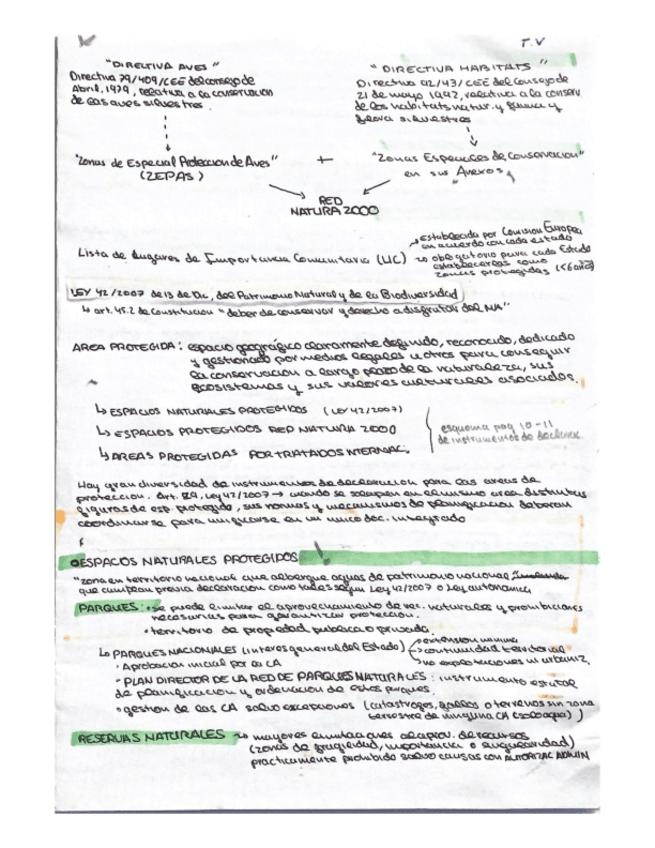 T.V
"DIRECTIVA AVES"
Directiva 79/409/CEE del consejo de
Abril, 1979, relativa a la conservacion
de las aves silvestres
"DIRECTIVA HABITATS"
Directiva 92/43/CEE del Consejo de
21 de mayo 1992, relativa a la conserv.
de los habitats natur. y fauna y
flora silvestres
"Zonas de Especial Proteccion de Aves"
(ZEPAS)
+
"Zonas Especiales de Conservacion"
en sus Anexos
RED
NATURA 2000
Lista de Lugares de Importancia Comunitaria (LIC)
→ establecida por Comision Europea
en acuerdo con cada estado
→ obligatorio para cada Estado
establecerlas como
zonas protegidas (<6 años)
LEY 42/2007 de 13 de Dic, del Patrimonio Natural y de la Biodiversidad
↳ art. 45.2 de Constitucion "deber de conservar y derecho a disfrutar del MA"
AREA PROTEGIDA: espacio geográfico claramente definido, reconocido, dedicado
y gestionado por medios legales u otros para conseguir
la conservacion a largo plazo de la naturaleza, sus
ecosistemas y sus valores culturales asociados.
↳ ESPACIOS NATURALES PROTEGIDOS (LEY 42/2007)
↳ ESPACIOS PROTEGIDOS RED NATURA 2000
↳ AREAS PROTEGIDAS POR TRATADOS INTERNAC.
esquema pag 10-11
de instrumentos de declarac.
Hay gran diversidad de instrumentos de declaracion para las areas de
proteccion. Art. 29, Ley 42/2007 → cuando se solapen en el mismo area distintas
figuras de esp. protegido, sus normas y mecanismos de planificacion deberan
coordinarse para unificarse en un unico doc. integrado
ESPACIOS NATURALES PROTEGIDOS !
"zona en territorio nacional que albergue aguas de patrimonio nacional
que cumplan previa declaracion como tales segun Ley 42/2007 o Ley autonomica
PARQUES: • se puede limitar el aprovechamiento de rec. naturales y prohibiciones
necesarias para garantizar proteccion.
• territorio de propiedad publica o privada.
↳ PARQUES NACIONALES (interes general del Estado)
→ extension minima
→ continuidad territorial
→ no explotaciones ni urbaniz.
• Aprobacion inicial por la CA
• PLAN DIRECTOR DE LA RED DE PARQUES NATURALES: instrumento estatal
de planificacion y ordenacion de estos parques.
• gestion de las CA salvo excepciones (catastrofes, o terrenos sin zona
terrestre de ninguna CA (solo agua))
RESERVAS NATURALES → mayores limitaciones de aprov. de recursos
(zonas de fragilidad, importancia o singularidad)
practicamente prohibido salvo causas con AUTORIZAC ADMIN